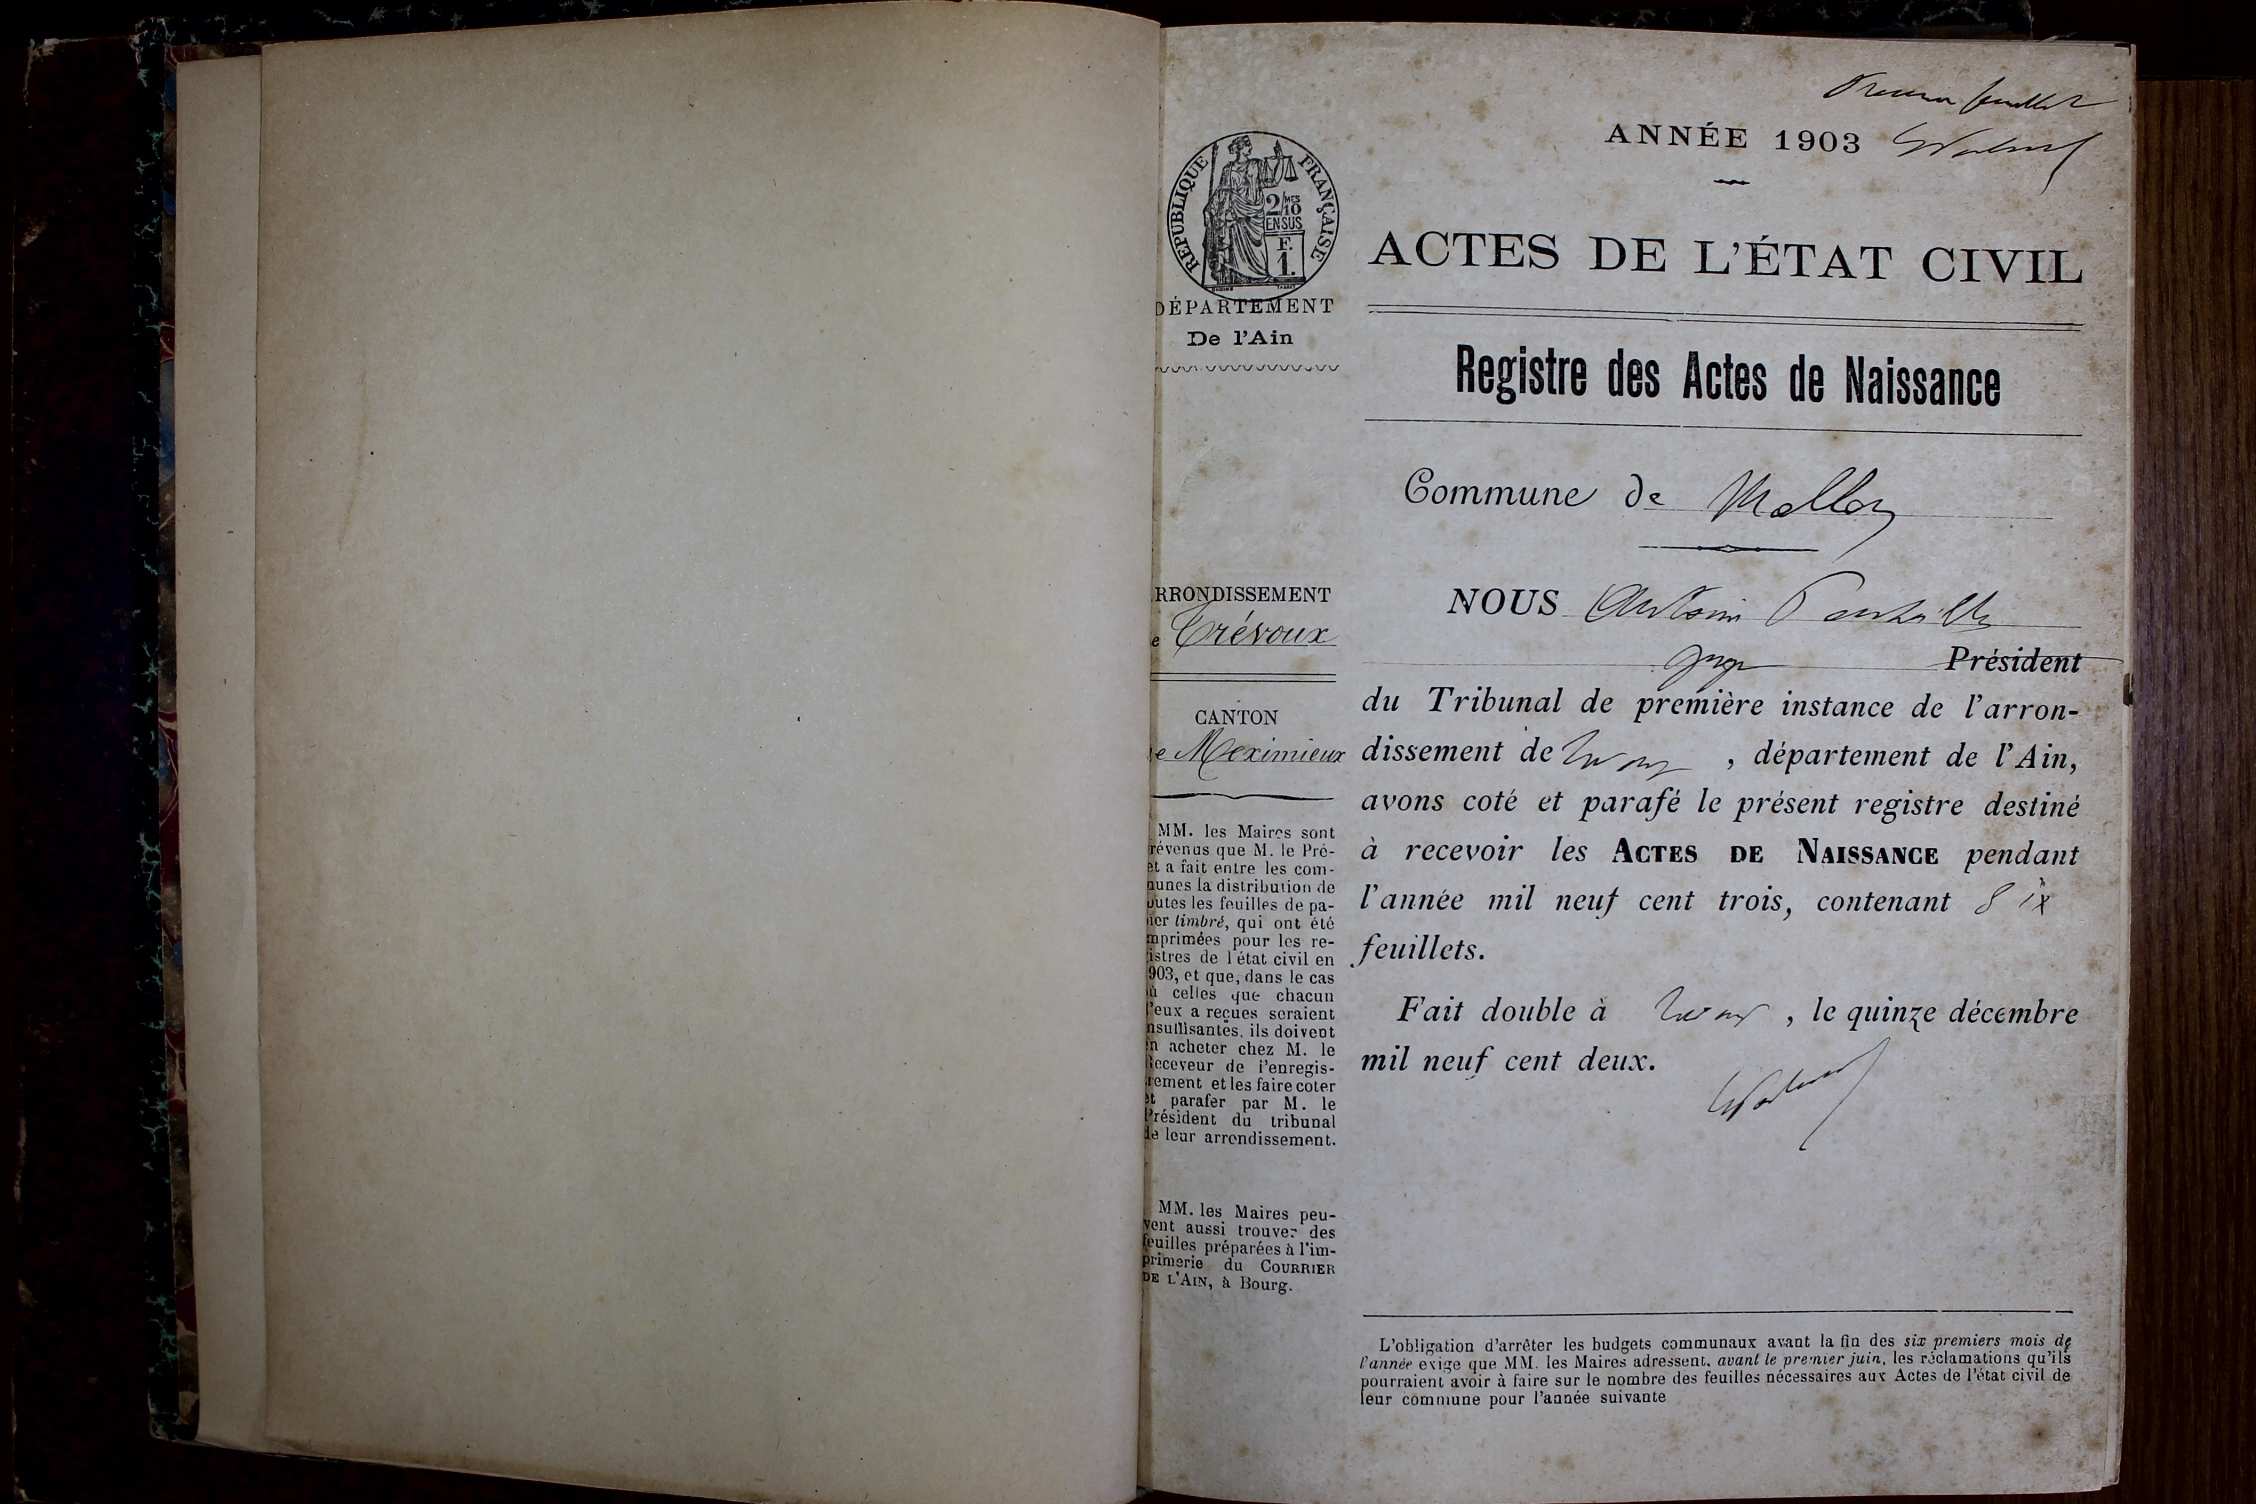 Premier feuillet
ANNÉE 1903
RÉPUBLIQUE FRANÇAISE
2/10 MES
EN SUS
F.
1.
DÉPARTEMENT
De l'Ain
ACTES DE L'ÉTAT CIVIL
Registre des Actes de Naissance
Commune de Mollon
RRONDISSEMENT
e Trévoux
CANTON
e Meximieux
MM. les Maires sont
révenus que M. le Pré-
et a fait entre les com-
nunes la distribution de
outes les feuilles de pa-
ier timbré, qui ont été
mprimées pour les re-
istres de l'état civil en
903, et que, dans le cas
ù celles que chacun
d'eux a reçues seraient
nsuffisantes, ils doivent
en acheter chez M. le
Receveur de l'enregis-
rement et les faire coter
et parafer par M. le
Président du tribunal
de leur arrondissement.
MM. les Maires peu-
vent aussi trouver des
feuilles préparées à l'im-
primerie du COURRIER
DE L'AIN, à Bourg.
NOUS Antoine
juge Président
du Tribunal de première instance de l'arron-
dissement de Trévoux, département de l'Ain,
avons coté et parafé le présent registre destiné
à recevoir les ACTES DE NAISSANCE pendant
l'année mil neuf cent trois, contenant six
feuillets.
Fait double à Trévoux, le quinze décembre
mil neuf cent deux.
L'obligation d'arrêter les budgets communaux avant la fin des six premiers mois de
l'année exige que MM. les Maires adressent, avant le premier juin, les réclamations qu'ils
pourraient avoir à faire sur le nombre des feuilles nécessaires aux Actes de l'état civil de
leur commune pour l'année suivante